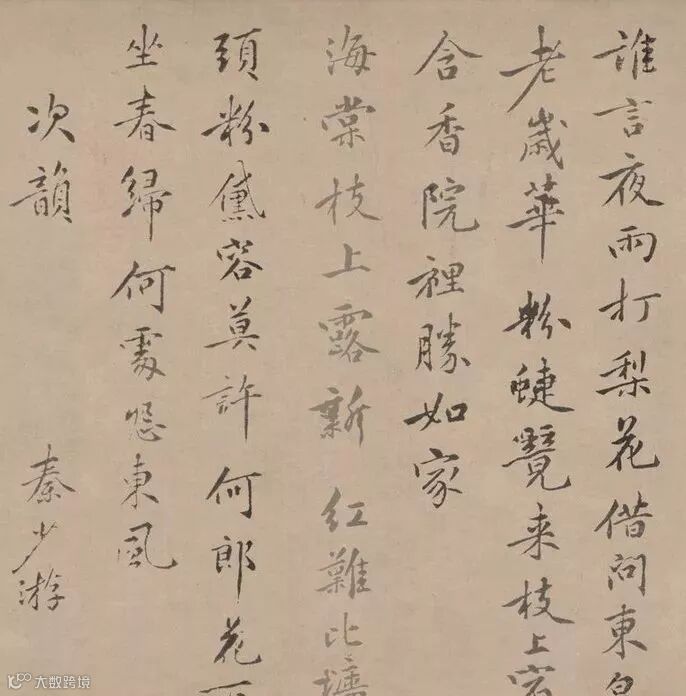 誰言夜雨打梨花借問東
老歲華粉蜨覺来枝上
含香院裡勝如家
海棠枝上露新紅難比墻
頭粉黛容莫許何郎花下
坐春歸何處怨東風
次韻 秦少游
大数跨境